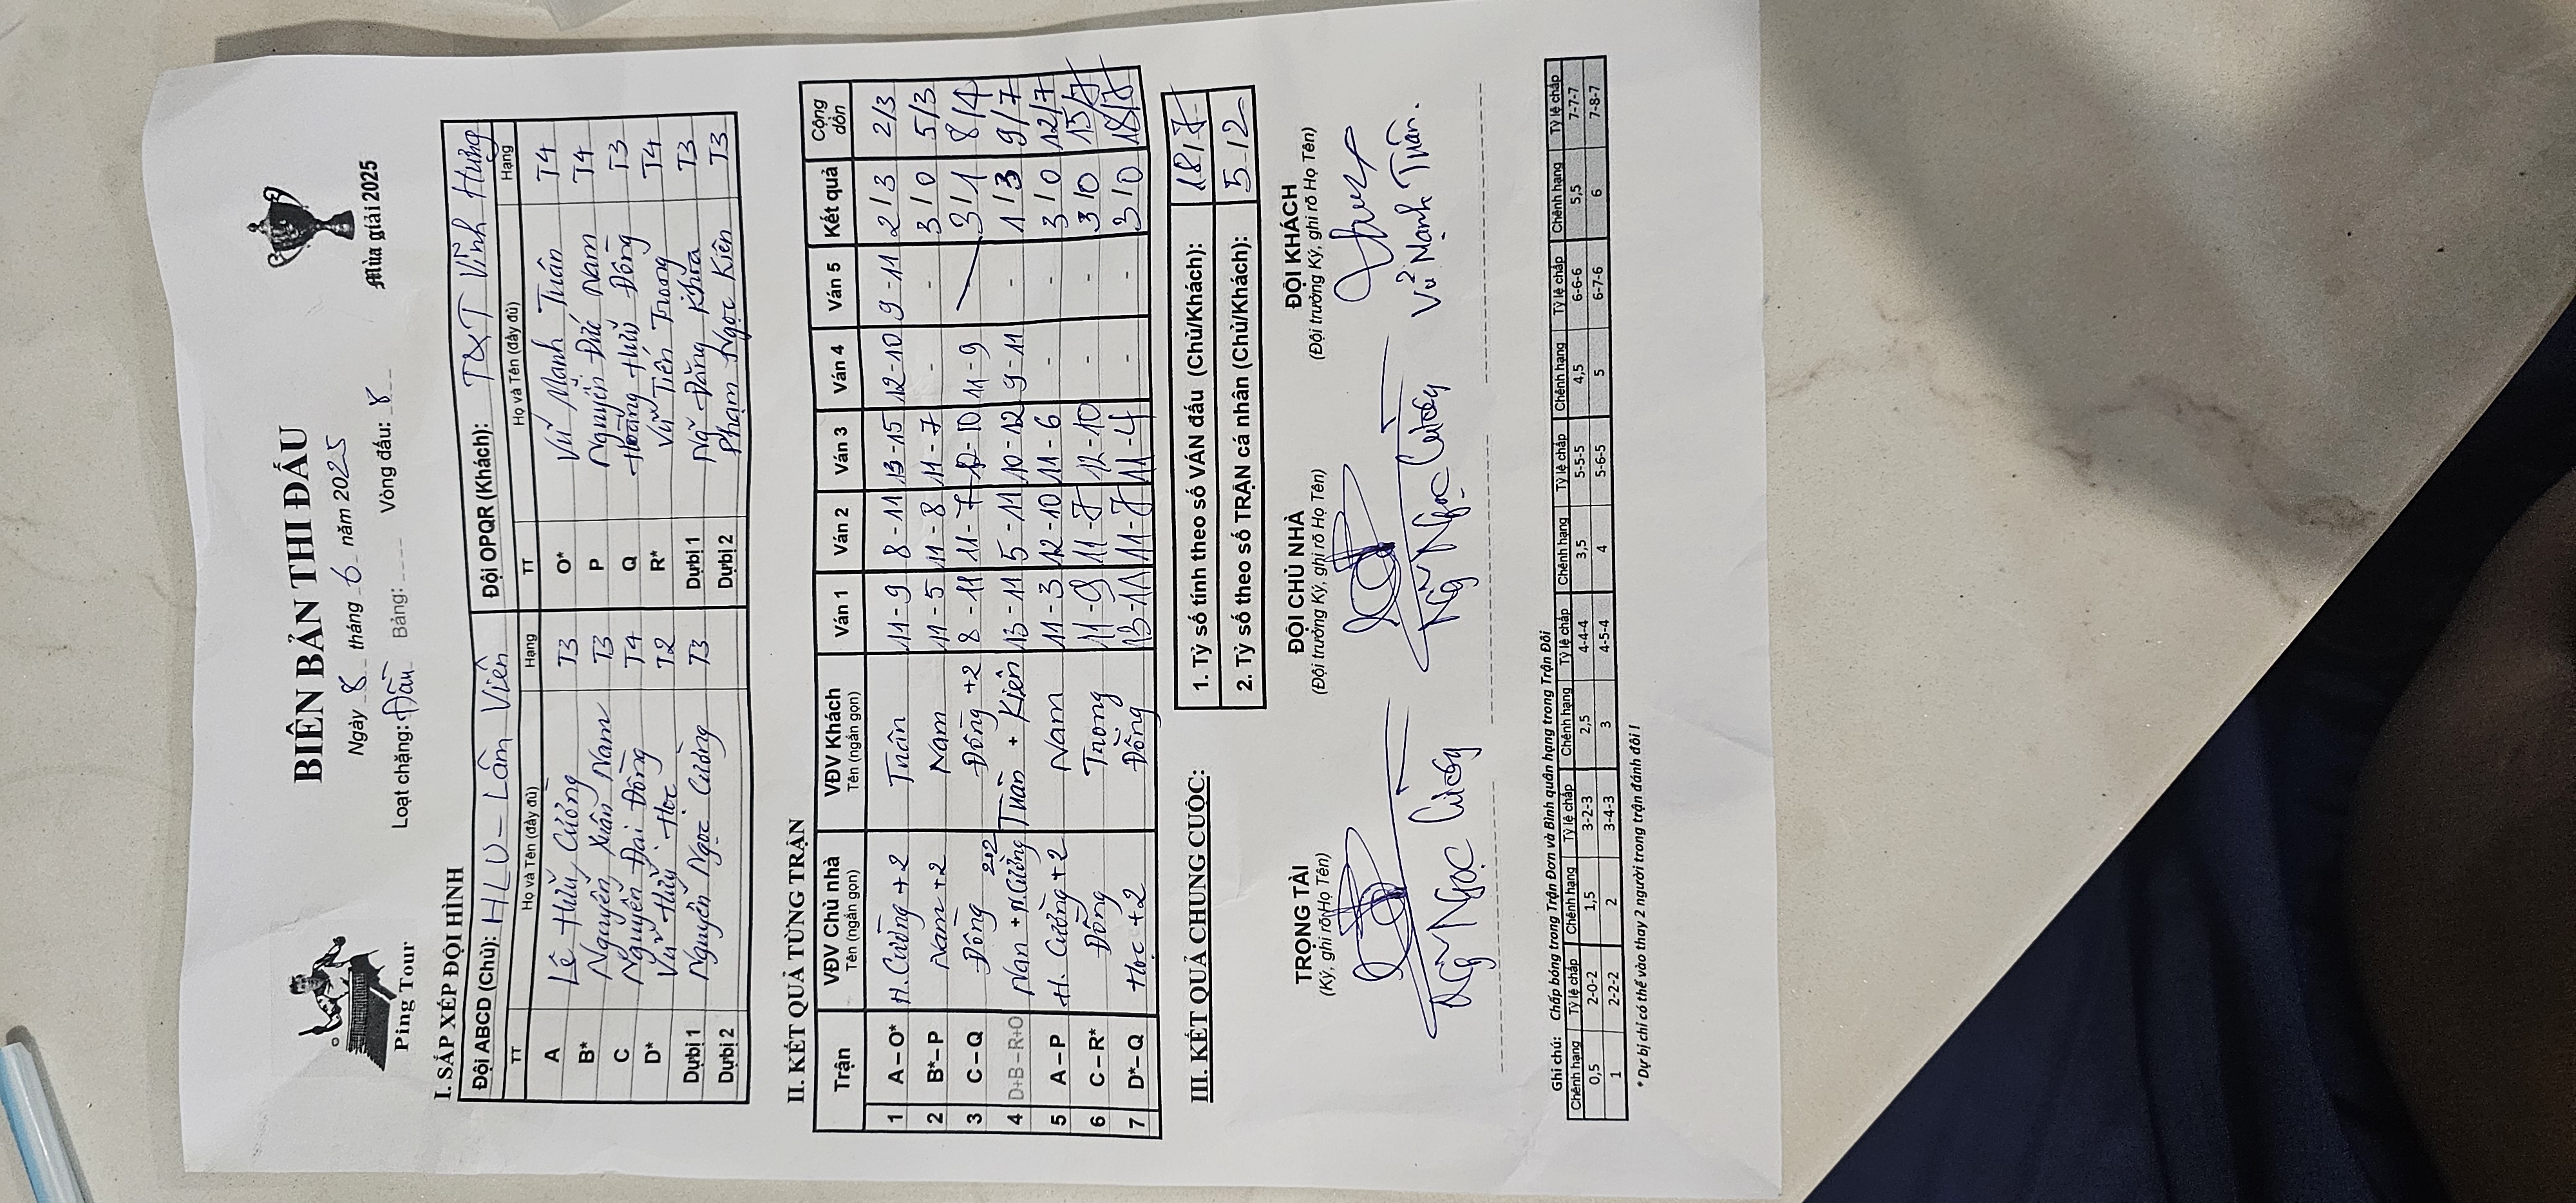 Ping Tour
BIÊN BẢN THI ĐẤU
Ngày 8 tháng 6 năm 2025
Loạt chặng: Đấu Bảng: Vòng đấu: 8
Mùa giải 2025
I. SẮP XẾP ĐỘI HÌNH
Đội ABCD (Chủ): HLU - Lâm Viên Đội OPQR (Khách): T&T Vĩnh Hưng
TT Họ và Tên (đầy đủ) Hạng TT Họ và Tên (đầy đủ) Hạng
A Lê Hữu Cường T3 O* Vũ Mạnh Tuân T4
B* Nguyễn Xuân Nam T3 P Nguyễn Đức Nam T4
C Nguyễn Đại Đồng T4 Q Hoàng Huy Đông T3
D* Vũ Hữu Học T2 R* Vũ Tiến Trong T4
Dự bị 1 Nguyễn Ngọc Cường T3 Dự bị 1 Ng Đăng Khoa T3
Dự bị 2 Dự bị 2 Phạm Ngọc Kiên T3
II. KẾT QUẢ TỪNG TRẬN
Trận VĐV Chủ nhà VĐV Khách Ván 1 Ván 2 Ván 3 Ván 4 Ván 5 Kết quả Cộng dồn
Tên (ngắn gọn) Tên (ngắn gọn)
1 A – O* H.Cường +2 Tuân 11-9 8-11 13-15 12-10 9-11 2/3 2/3
2 B* – P Nam +2 Nam 11-5 11-8 11-7 - - 3/0 5/3
3 C – Q Đồng Đông +2 8-11 11-7 12-10 11-9 3/1 8/4
4 D+B – R+O Nam + N.Cường Tuân + Kiên 13-11 5-11 10-12 9-11 - 1/3 9/7
5 A – P H. Cường +2 Nam 11-3 12-10 11-6 - - 3/0 12/7
6 C – R* Đồng Trong 11-9 11-7 12-10 - - 3/0 15/7
7 D* – Q Học +2 Đông 13-11 11-7 11-4 - - 3/0 18/7
III. KẾT QUẢ CHUNG CUỘC:
1. Tỷ số tính theo số VÁN đấu (Chủ/Khách): 18/7
2. Tỷ số theo số TRẬN cá nhân (Chủ/Khách): 5-12
TRỌNG TÀI ĐỘI CHỦ NHÀ ĐỘI KHÁCH
(Ký, ghi rõ Họ Tên) (Đội trưởng Ký, ghi rõ Họ Tên) (Đội trưởng Ký, ghi rõ Họ Tên)
Ng Ngọc Cường Ng Ngọc Cường Vũ Mạnh Tuân.
Ghi chú: Chấp bóng trong Trận Đơn và Bình quân hạng trong Trận Đôi
Chênh hạng Tỷ lệ chấp Chênh hạng Tỷ lệ chấp Chênh hạng Tỷ lệ chấp Chênh hạng Tỷ lệ chấp Chênh hạng Tỷ lệ chấp Chênh hạng Tỷ lệ chấp
0,5 2-0-2 1,5 3-2-3 2,5 4-4-4 3,5 5-5-5 4,5 6-6-6 5,5 7-7-7
1 2-2-2 2 3-4-3 3 4-5-4 4 5-6-5 5 6-7-6 6 7-8-7
* Dự bị chỉ có thể vào thay 2 người trong trận đánh đôi !